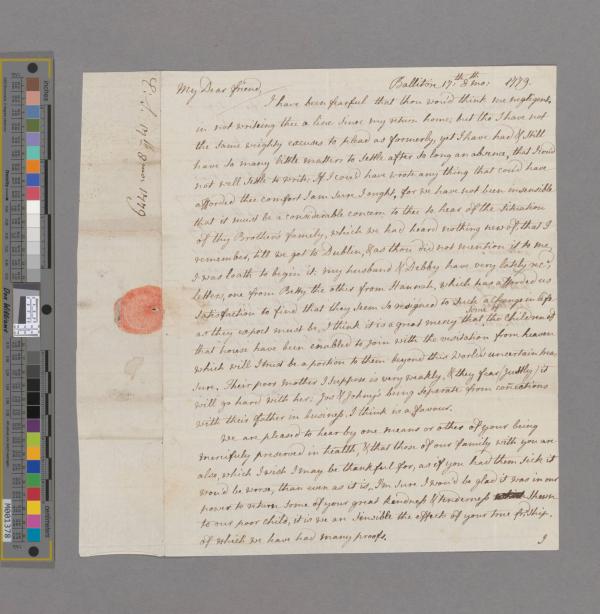 My Dear friend, Balliton 17th 8th mo: 1779.
I have been fearful that thou woud think me negligent,
in not writing thee a line since my return home, but tho I have not
the same weighty excuses to plead as formerly, yet I have had & still
have so many little matters to settle after so long an absence, that I coud
not well settle to write; If I could have wrote any thing that could have
afforded thee comfort I am sure I ought, for we have not been insensible
that it must be a considerable concern to thee to hear of the situation
of thy Brother's family, which we had heard nothing new of, that I
remember, till we got to Dublin, & as thou did not mention it to me,
I was loath to begin it. my husband & Debby have very lately rec.d
letters, one from Betty the other from Hannah, which has afforded us
satisfaction to find that they seem so resigned to such a change in life
as they expect must be, I think it is a great mercy that some of the Children of
that house have been enabled to join with the visitation from heaven
which will I trust be a portion to them beyond this World's uncertain trea-
sure. Their poor mother I suppose is very weakly, & they fear (justly) it
will go hard with her; Jos & Johny's being separate from conections
with their father in business, I think is a favour.
We are pleased to hear by one means or other of your being
mercifully preserved in health, & that those of our family with you are
also, which I wish I may be thankful for, as if you had them sick it
woud be worse, than even as it is, I'm sure I woud be glad it was in our
power to return some of your great kindness & tenderness shewn
to our poor child, it is we are sensible the effects of your true fr.dship,
of which we have had many proofs.
17th 8 mo: 1779
inches
Don Williams
M001378